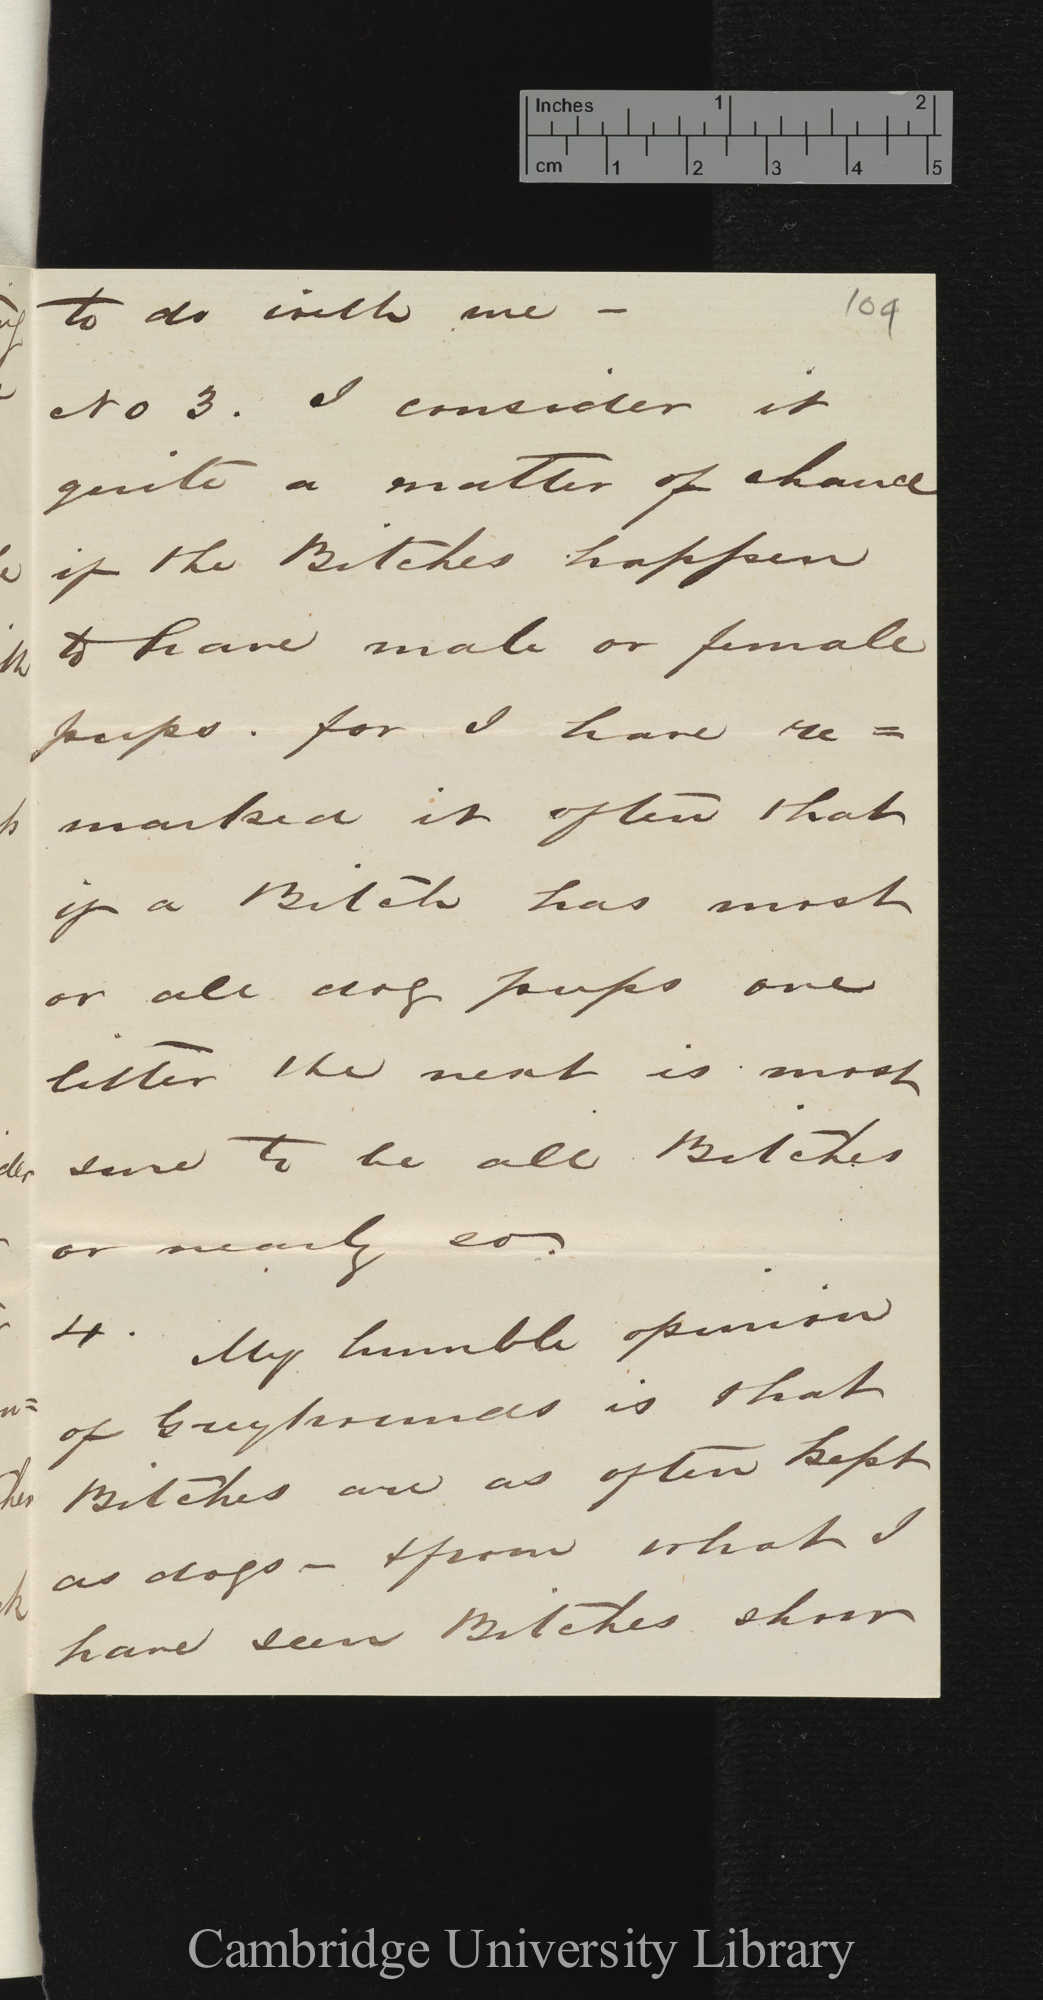 Inches 1 2
cm 1 2 3 4 5
109
to do with me –
No 3. I consider it
quite a matter of chance
if the Bitches happen
to have male or female
pups. for I have re=
marked it often that
if a Bitch has most
or all dog pups one
litter the next is most
sure to be all Bitches
or nearly so.
4. My humble opinion
of Greyhounds is that
Bitches are as often kept
as dogs – & from what I
have seen Bitches show
Cambridge University Library